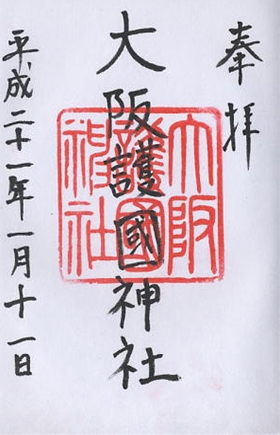 奉拝
大阪護國神社
大阪護國神社
平成二十一年一月十一日